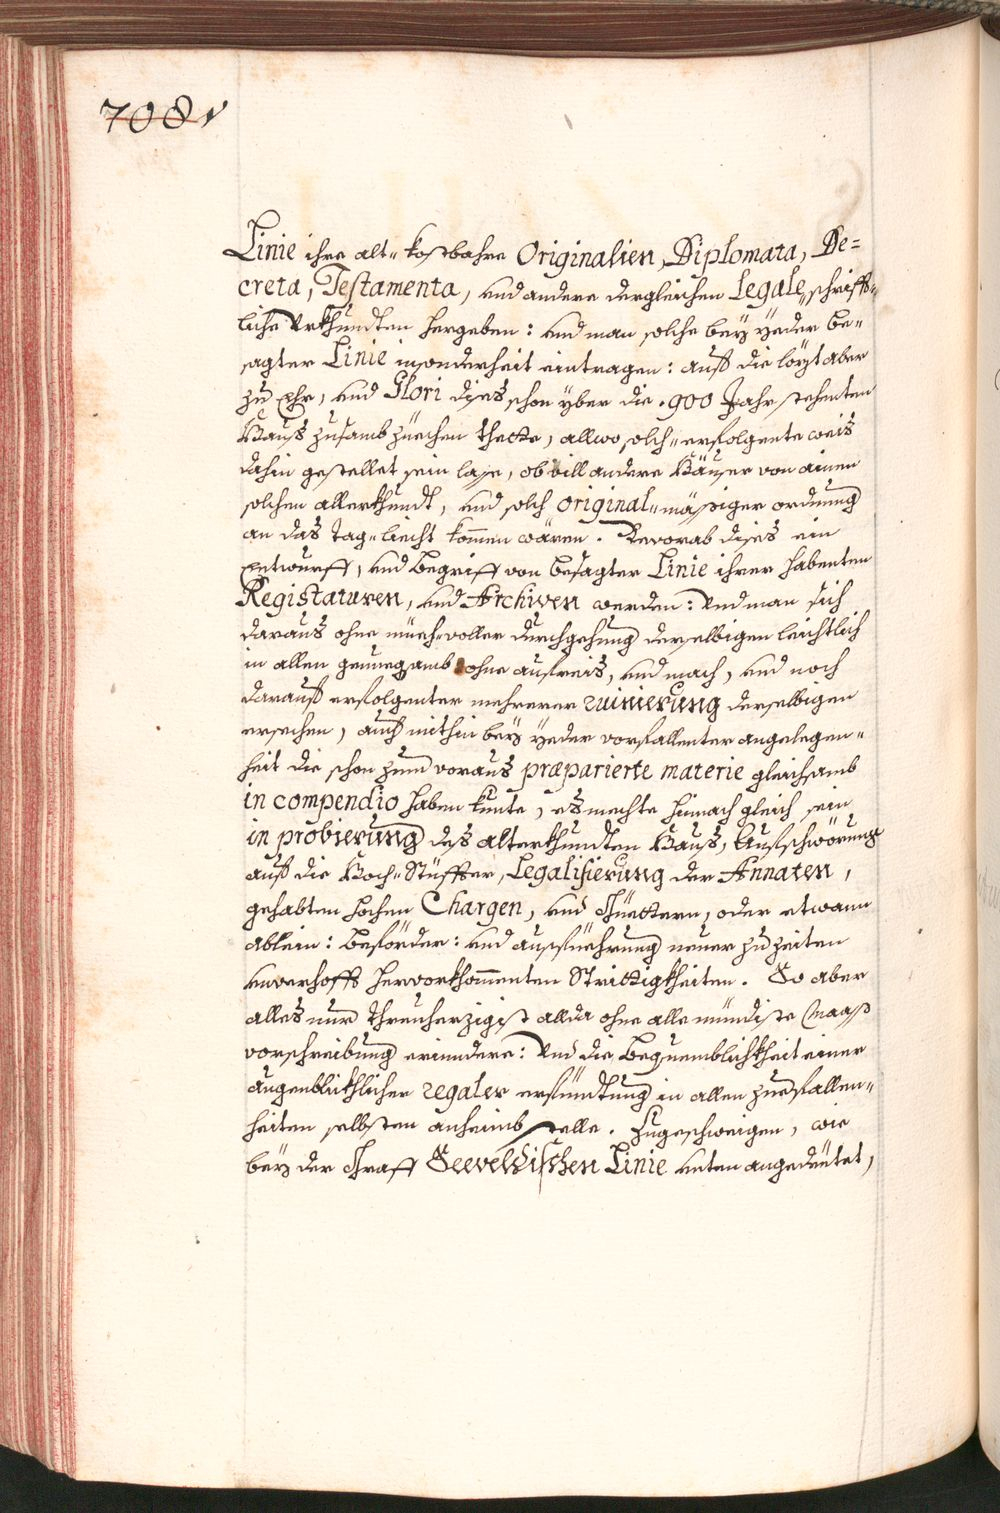 708v
Linie ihre alt- kostbahre Originalien, Diplomata, De=
creta, Testamenta, und andere dergleichen Legale, schrifft-
liche Urkhundten hergeben: und man solche beÿ ÿeder be-
sagter Linie insonderheit eintragen: auß die lözt aber
zu Ehr, und Glori dises schon yber die .900 Jahr stehenten
Hauß zusamb zuechen thette, allwo solch- erfolgente weis
dahin gestellet sein lase, ob vill andere Häuser von ainem
solchen alterkhundt, und solch original-mässiger ordnung
an das tag-liecht kommen wären. Bevorab dises ein
Entwurff, und Begriff von besagter Linie ihrer habenten
Registaturen, und Archiven werden: Und man sich
daraus ohne müeh-voller durchgehung derselbigen leichtlich
in allen genuegsamb ohne aufreis, und mach, und noch
darauß erfolgenter mehrerer ruinierung derselbigen
ersechen, auch mithin beÿ ÿeder vorfallenter angelegen-
heit die schon zum voraus præparierte materie gleichsamb
in compendio haben kunte, es mechte hirnach gleich sein
in probierung des alterkhundten Hauß, Aufschwörung
auf die Hoch-Stüffter, Legalisierung der Annaten,
gehabten hochen Chargen, und Güettern, oder etwann
ablein: beförder: und ausfüehrung neuer zu zeiten
unverhofft hervorkhommenten Strittigkheiten. So aber
alles nur threuherzigist allda ohne alle mündiste Maaß
vorschreibung erinndere: Und die Bequemblichkheit einer
augenblickhlicher regaler erfündtung in allen zuefallen-
heiten selbsten anheimb stelle. Zugeschweigen, wie
beÿ der Graff Seeveldischen Linie unten angedeutet,